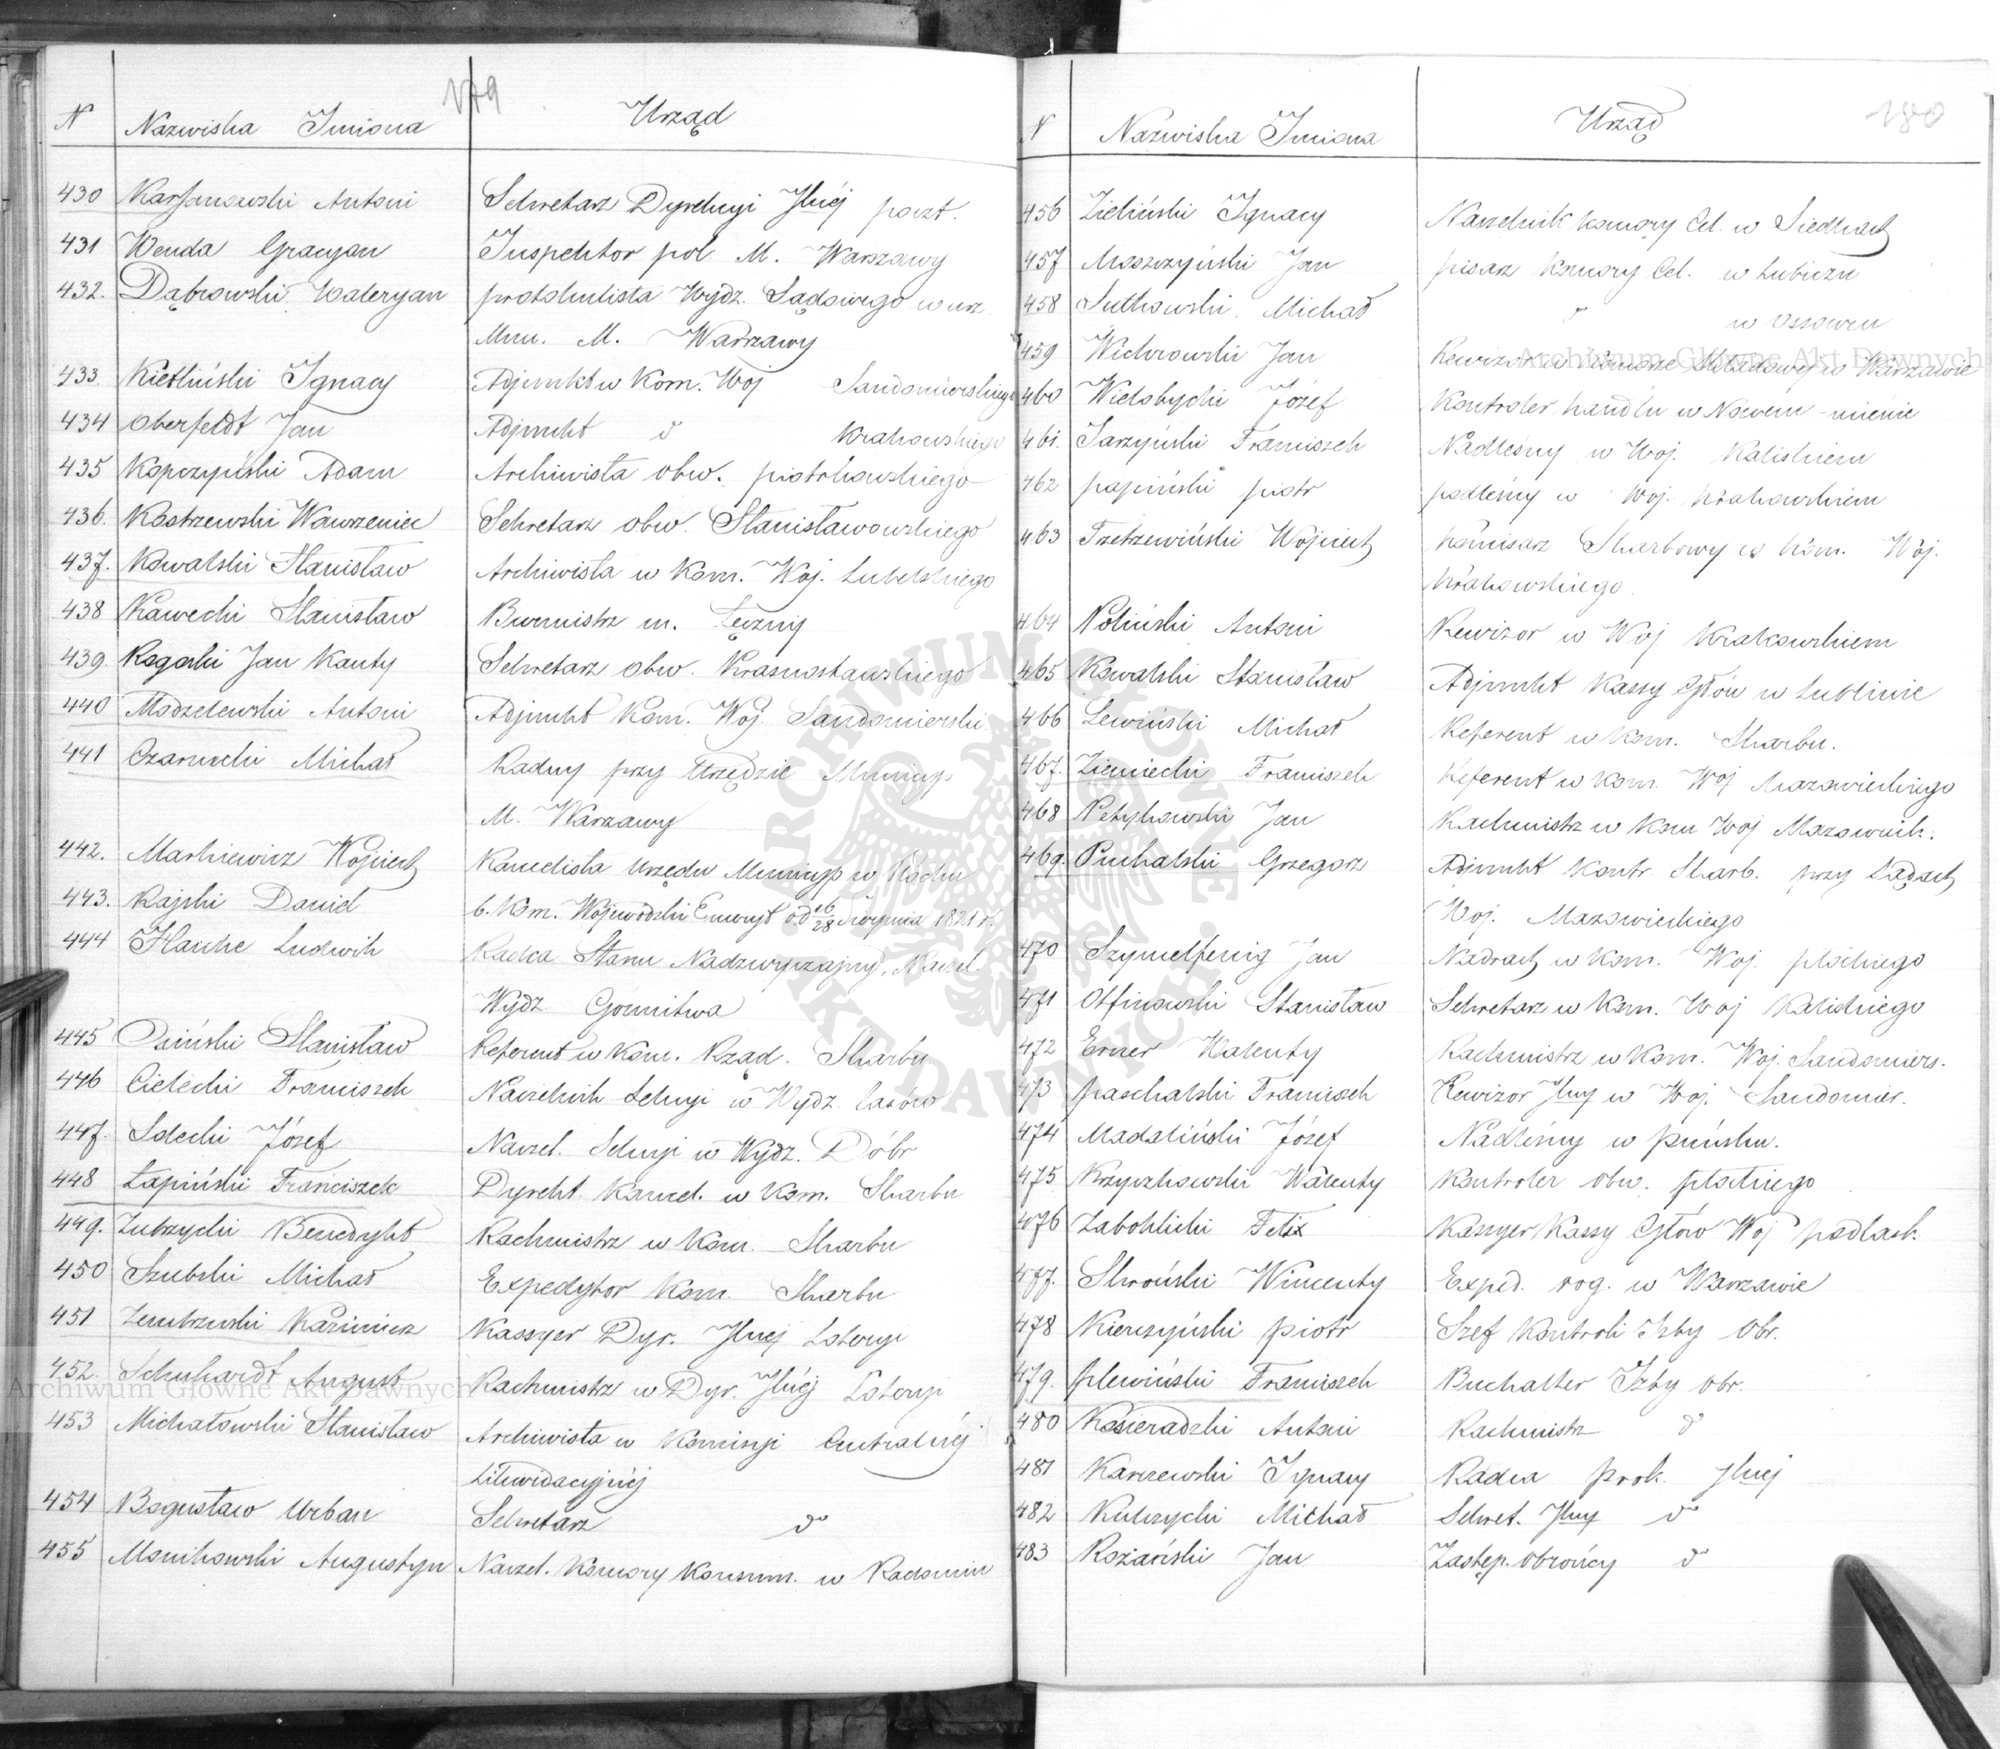 179
N Nazwiska Imiona Urząd
430 Karsanowski Antoni Sekretarz Dyrekcyi Jlnéj poczt.
431 Wenda Gracyan Inspektor pol M. Warszawy
432. Dąbrowski Waleryan protokulista Wydz. Sądowego w urz
Mun. M. Warszawy
433. Kietliński Ignacy Adjunkt w Kom. Woj Sandomierskiego
434 Oberfeldt Jan Adjunkt d Krakowskiego
435 Kopczyński Adam Archiwista obw. piotrkowskiego
436. Kostrzewski Wawrzeniec Sekretarz obw. Stanisławowskiego
437. Kowalski Stanisław Archiwista w Kom. Woj. Lubelskiego
438 Kawecki Stanisław Burmistrz m. Łęczny
439. Rogoski Jan Kanty Sekretarz obw. Krasnostawskiego
440 Modzelewski Antoni Adjunkt Kom. Woj. Sandomierski
441 Czarnecki Michał Radny przy Urzędzie Municyp
M. Warszawy
442. Markiewicz Wojciech Kancelista Urzędu Municyp w Radm
443. Rajski Daniel b. Kom. Wojewodzki Emeryt od 16/28 Sierpnia 1821 r.
444 Hauke Ludwik Radca Stanu Nadzwyczajny, Naczel.
Wydz Górnictwa
445 Osiński Stanisław Referent w Kom. Rząd. Skarbu
446 Cielecki Franciszek Naczelnik Sekcyi w Wydz. Lasów
447. Solecki Józef Naczel. Sekcyi w Wydz. Dóbr
448 Łapiński Franciszek Dyrekt. Kancel. w Kom. Skarbu
449. Zubrzycki Benedykt Rachmistrz w Kom. Skarbu
450 Szubski Michał Expedytor Kom. Skarbu
451 Zembrzuski Kazimierz Kassyer Dyr. Jlnej Loteryi
452. Schuhardt August Rachmistrz w Dyr. Jlnéj Loteryi
453 Michałowski Stanisław Archiwista w Kommisyi Centralnéj
Likwidacyjnéj
454 Bogusław Urban Sekretarz do
455 Monikowski Augustyn Naczel. Komory Konsum. w Radomiu
180
N Nazwiska Imiona Urząd
456 Zieliński Ignacy Naczelnik Komory Cel. w Siedlcach
457 Moszczyński Jan pisarz Komory Cel. w Lubiczu
458 Sutkowski Michał d w Ossowcu
459 Wichrowski Jan Rewizor w Komorze Składowej w Warszawie
460 Wielobycki Józef Kontroler handlu w Nowém-mieście
461. Jarzyński Franciszek Nadleśny w Woj. Kaliskiem
462 papiński piotr podleśny w Woj. Krakowskiem
463 Tretrzewiński Wojciech Komisarz Skarbowy w Kom. Woj.
Krakowskiego
464 Noliński Antoni Rewizor w Woj Krakowskiem
465 Kowalski Stanisław Adjunkt Kassy Głów w Lublinie
466 Lewiński Michał Referent w Kom. Skarbu.
467. Ziemiecki Franciszek Referent w Kom. Woj Mazowieckiego
468 Petykowski Jan Rachmistrz w Kom Woj Mazowieck.
469. Puchalski Grzegorz Adjunkt Kontr. Skarb. przy Sądach
Woj. Mazowieckiego
470 Szymelfenig Jan Nadrach w Kom. Woj. płockiego
471 Otfinowski Stanisław Sekretarz w Kom. Woj Kaliskiego
472 Erner Walenty Rachmistrz w Kom. Woj. Sandomiers.
473 paschalski Franciszek Rewizor Jlny w Woj. Sandomier.
474 Madaliński Józef Nadleśny w pińsku.
475 Krzyczkowski Walenty Kontroler obw. płockiego
476 Zaboklicki Felix Kassyer Kassy Głów Woj podlask.
477. Skroński Wincenty Exped. rog. w Warszawie
478 Kierczyński piotr Szef Kontroli Izby Obr.
479. plewiński Franciszek Buchalter Izby obr.
480 Kosieradzki Antoni Rachmistrz d
481 Karczewski Ignacy Radca prok. Jlnej
482 Kulczycki Michał Sekret. Jlny do
483 Rozański Jan Zastęp. obrońcy do
Archiwum Główne Akt Dawnych
Archiwum Główne Akt Dawnych
ARCHIWUM GŁÓWNE AKT DAWNYCH